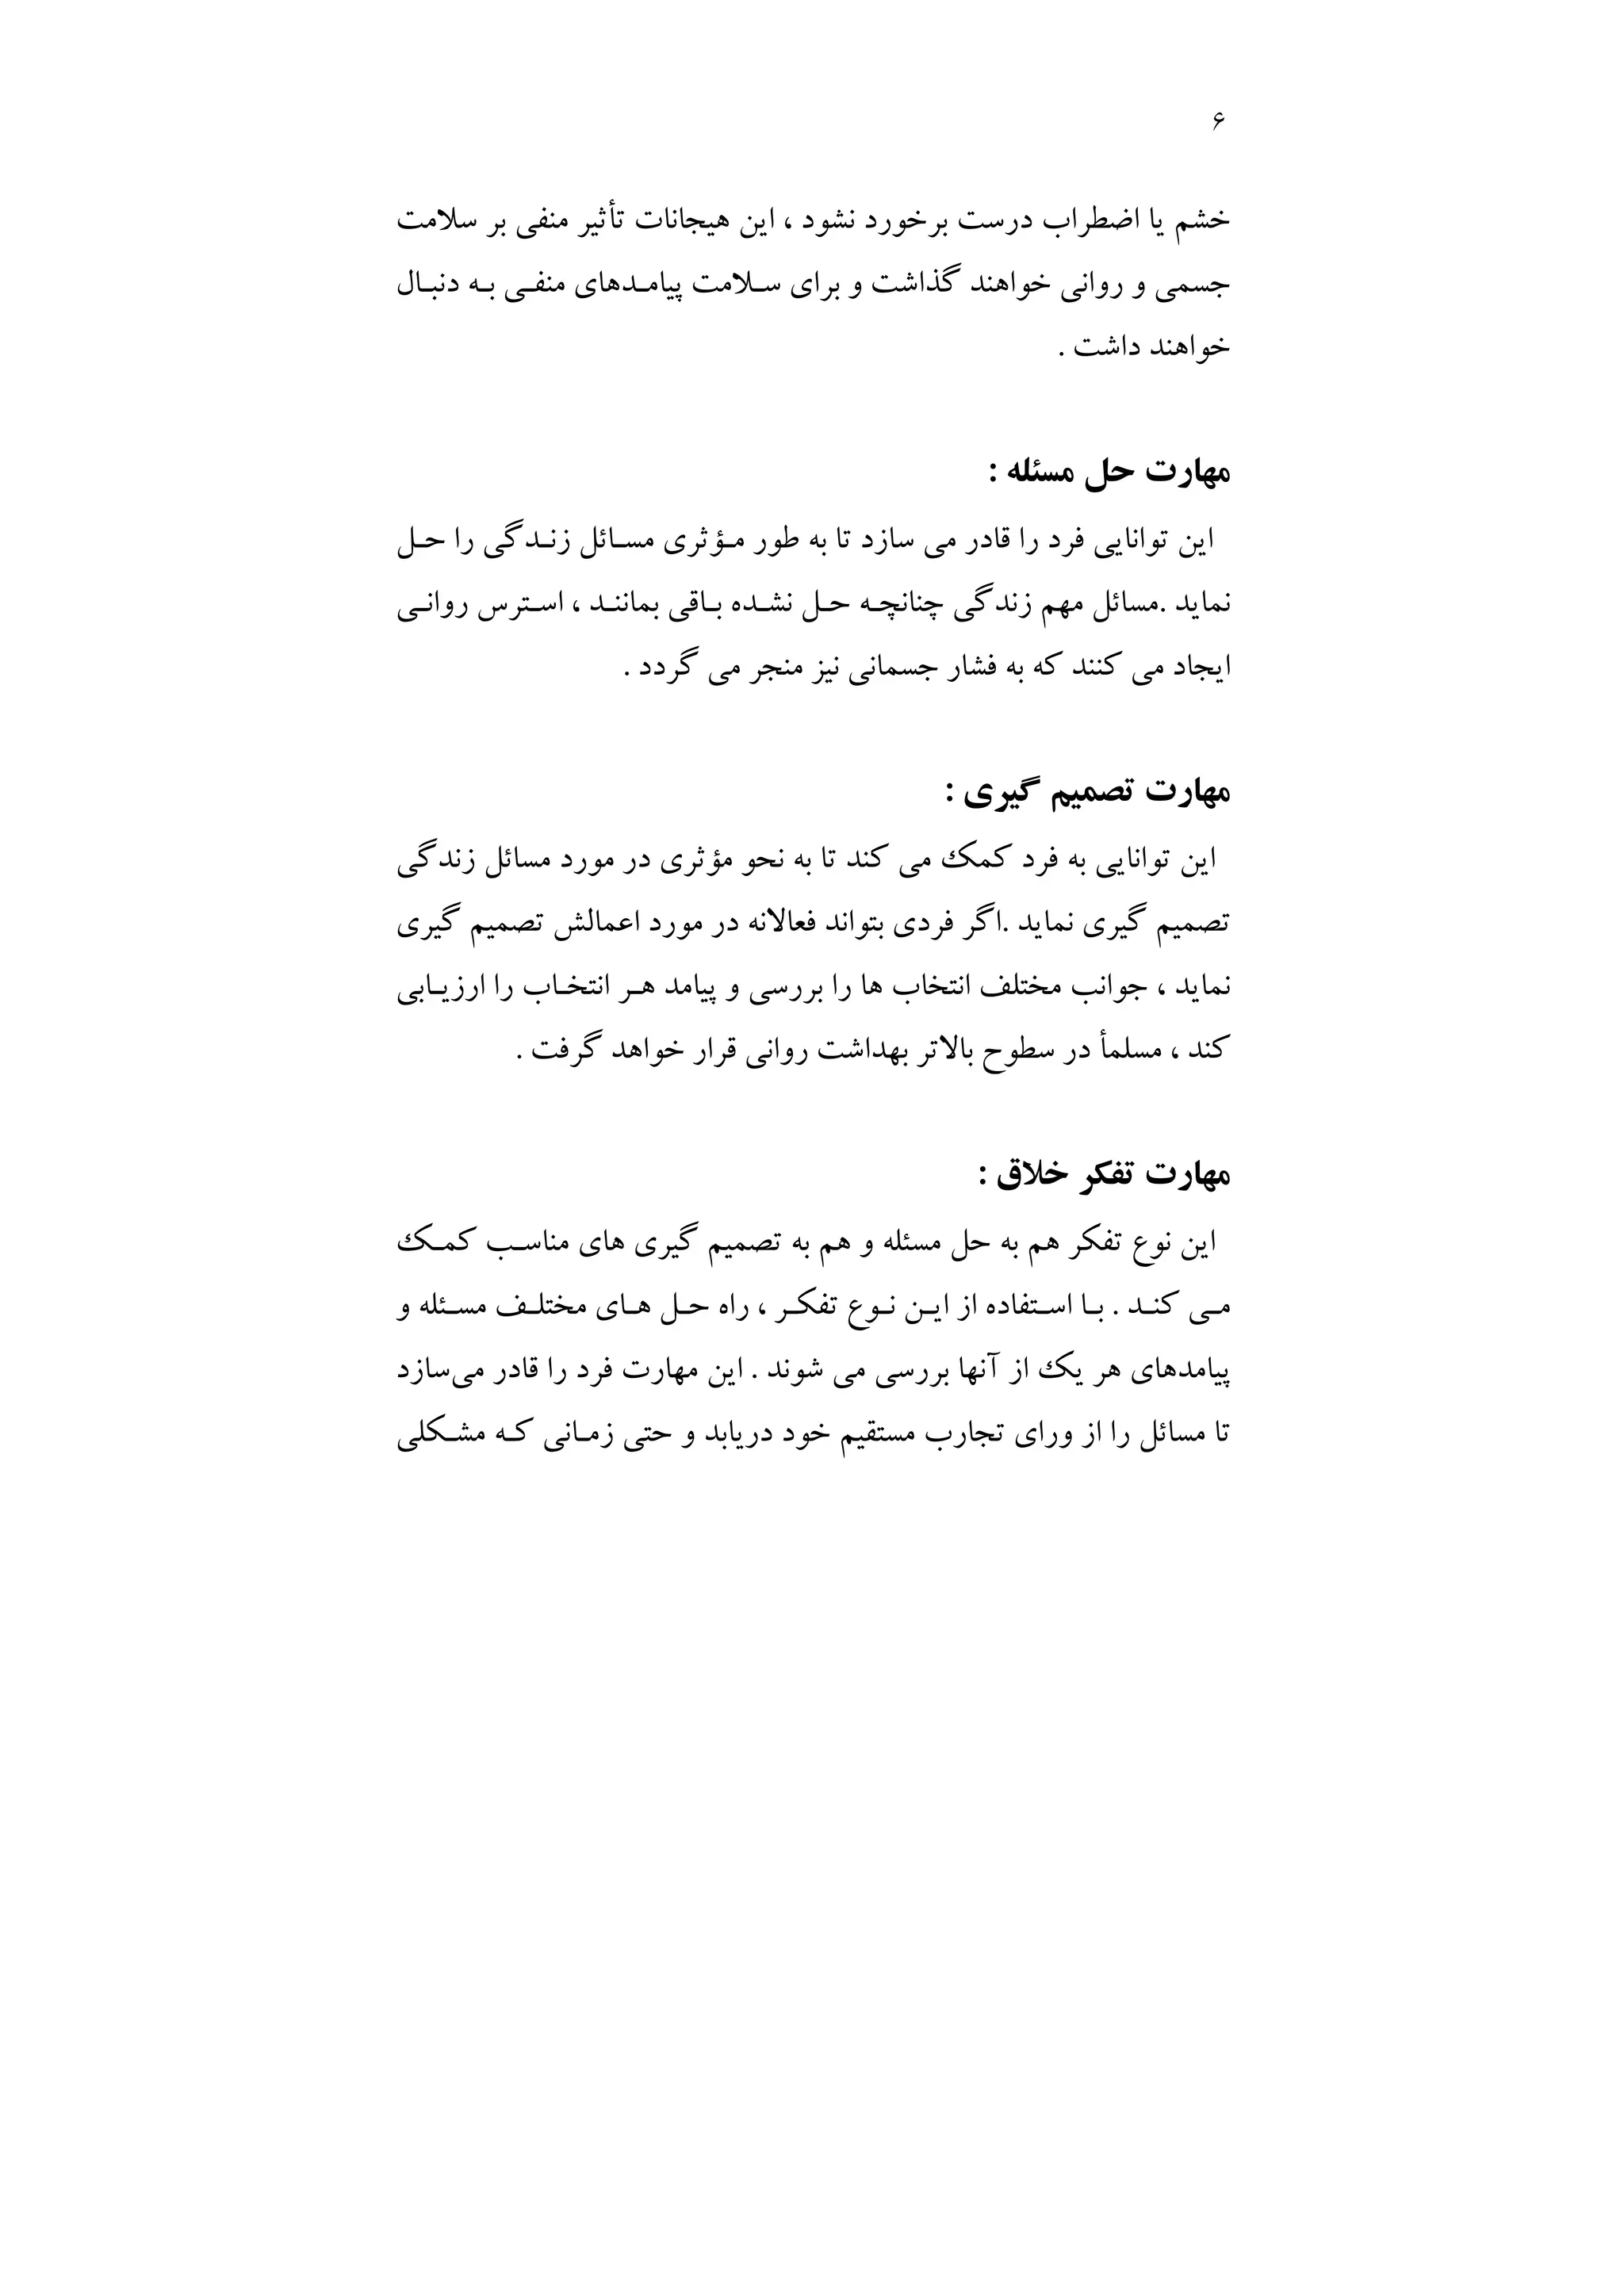 ۶
خشم یا اضطراب درست برخورد نشود ، این هیجانات تأثیر منفی بر سلامت
جسمی و روانی خواهند گذاشت و برای سلامت پیامدهای منفی به دنبال
خواهند داشت .
مهارت حل مسئله :
این توانایی فرد را قادر می سازد تا به طور مؤثری مسائل زندگی را حل
نماید .مسائل مهم زندگی چنانچه حل نشده باقی بمانند ، استرس روانی
ایجاد می کنند که به فشار جسمانی نیز منجر می گردد .
مهارت تصمیم گیری :
این توانایی به فرد کمک می کند تا به نحو مؤثری در مورد مسائل زندگی
تصمیم گیری نماید .اگر فردی بتواند فعالانه در مورد اعمالش تصمیم گیری
نماید ، جوانب مختلف انتخاب ها را بررسی و پیامد هر انتخاب را ارزیابی
کند ، مسلمأ در سطوح بالاتر بهداشت روانی قرار خواهد گرفت .
مهارت تفکر خلاق :
این نوع تفکر هم به حل مسئله و هم به تصمیم گیری های مناسب کمک
می کند . با استفاده از این نوع تفکر ، راه حل های مختلف مسئله و
پیامدهای هر یک از آنها بررسی می شوند . این مهارت فرد را قادر می‌سازد
تا مسائل را از ورای تجارب مستقیم خود دریابد و حتی زمانی که مشکلی